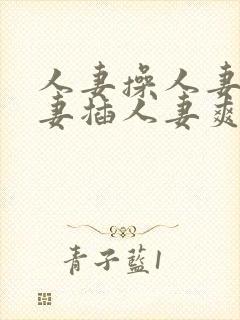 人妻操人妻
妻插人妻爽
青子藍1